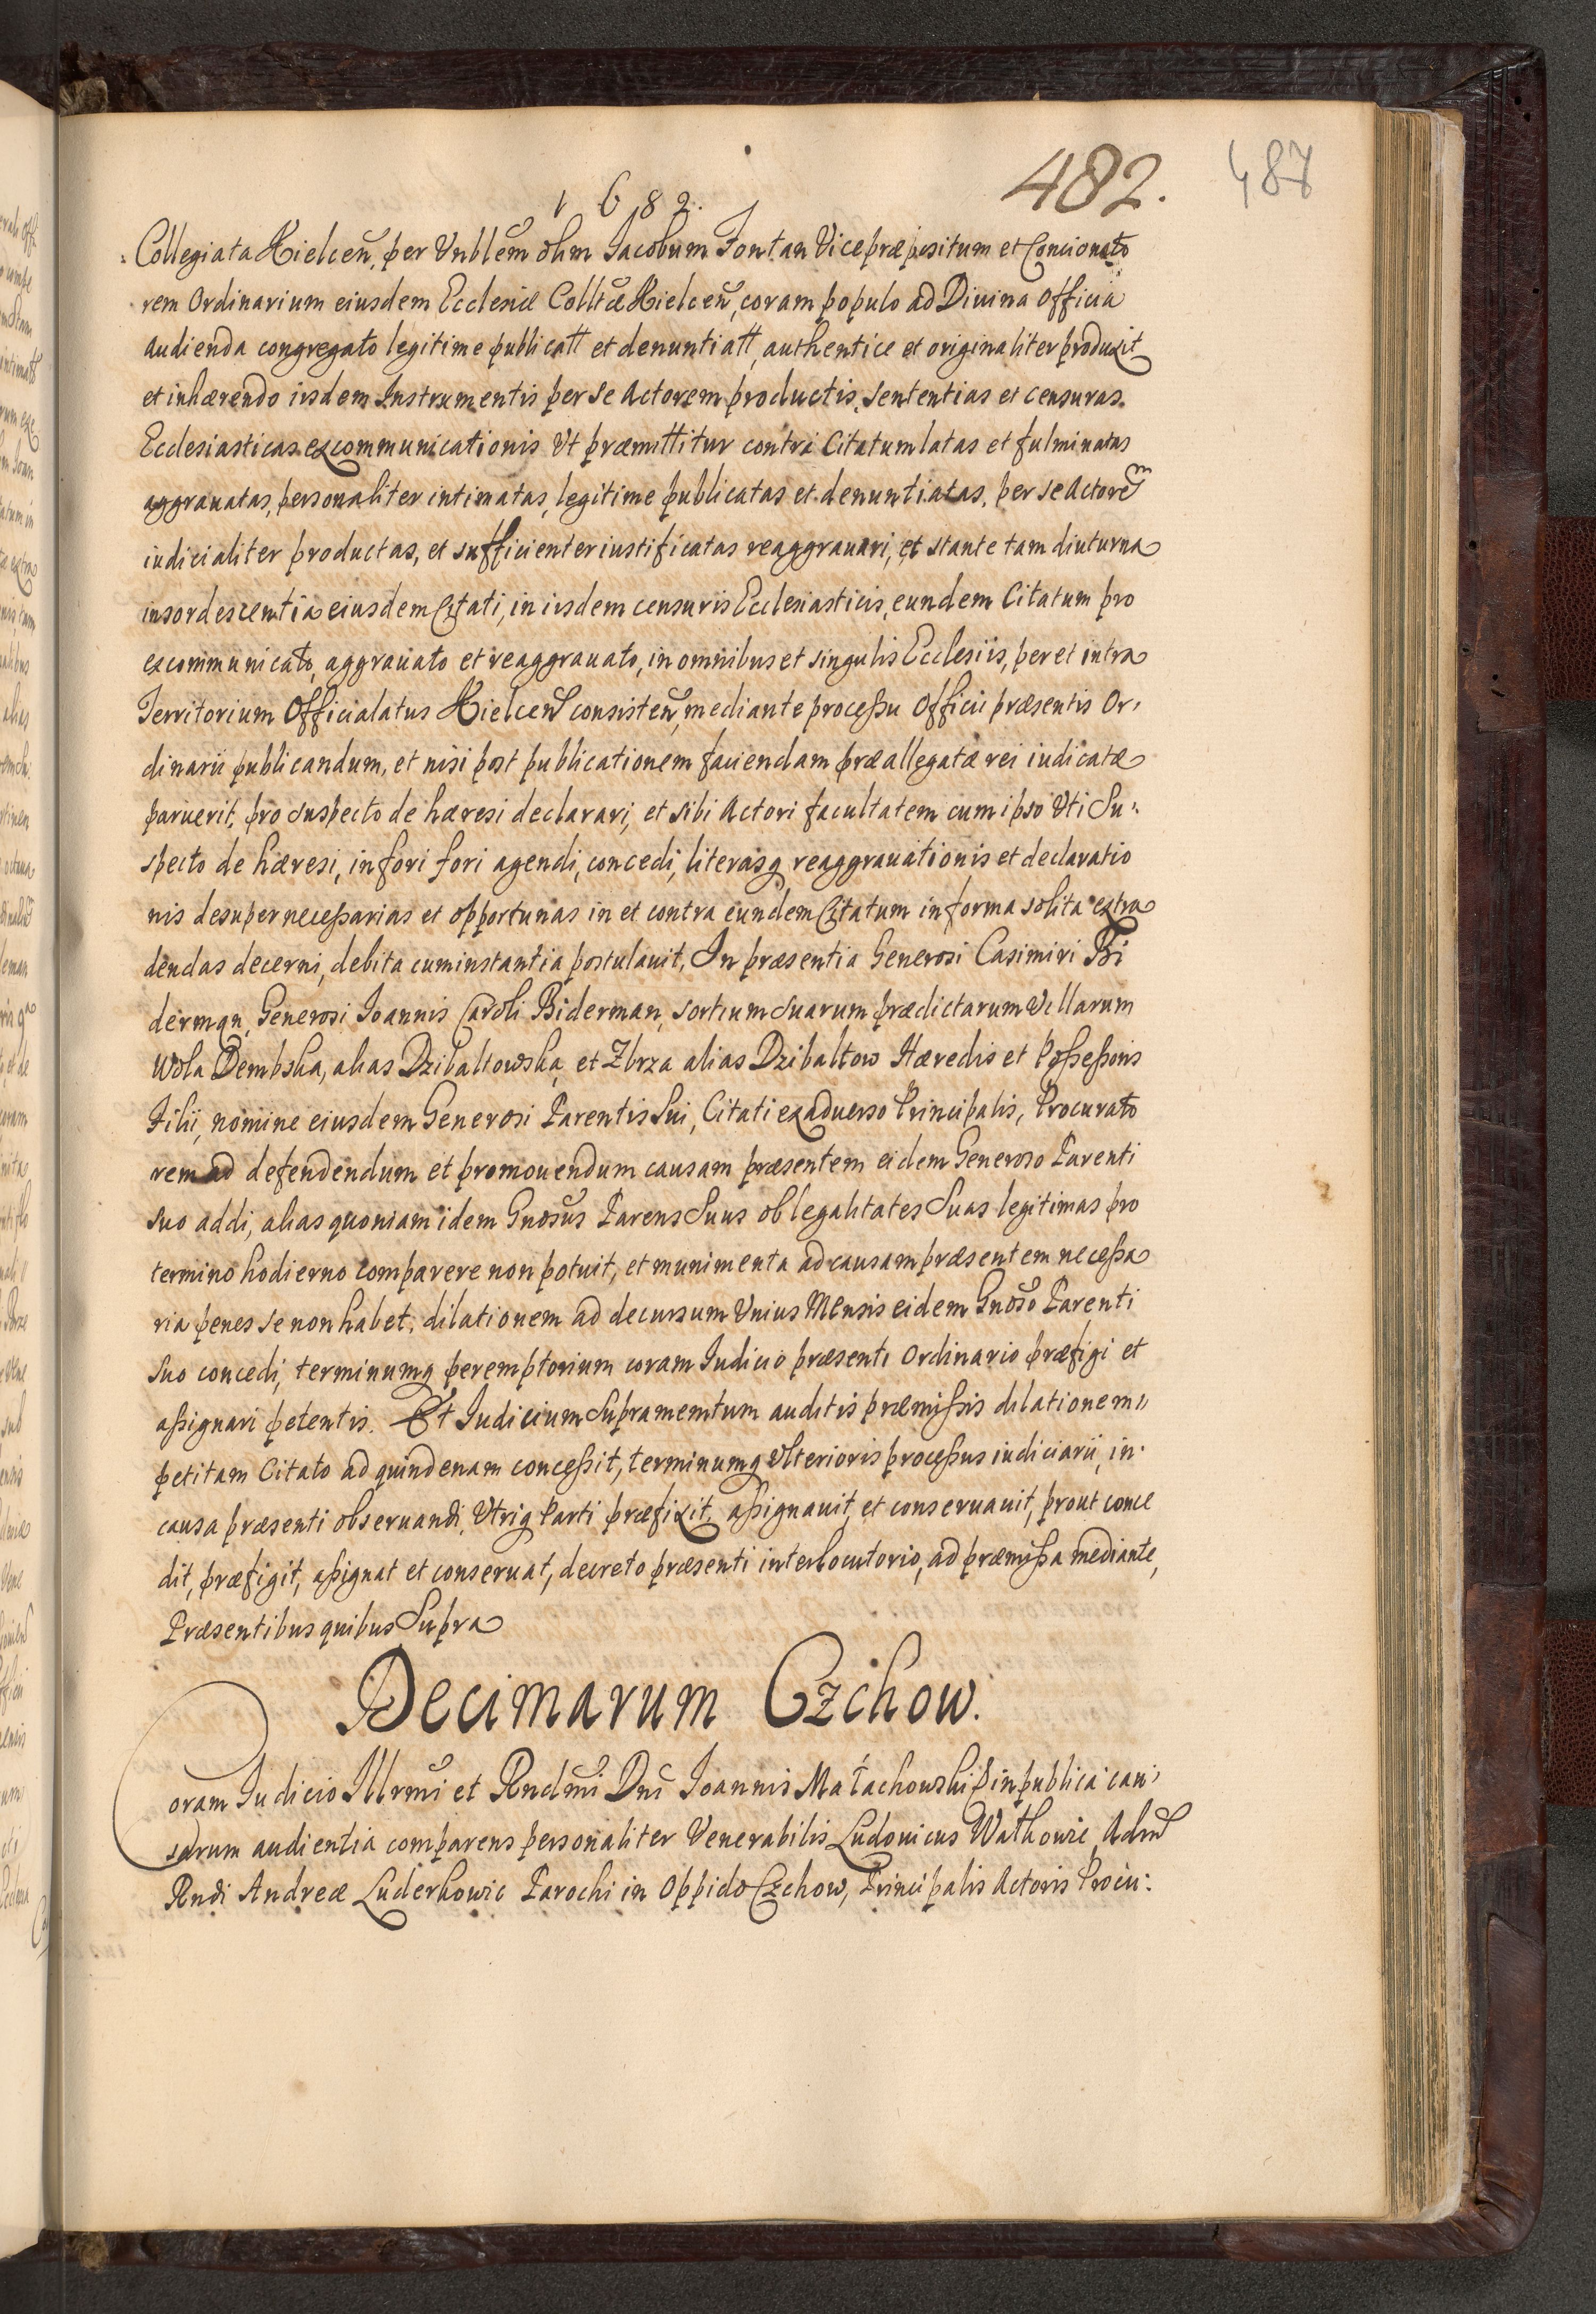 1682.
482.
487
Collegiata Kielceñ, per Vnblēm olim Iacobum Fontan Vicepræpositum et Concionato
rem Ordinarium eiusdem Ecclesiæ Colltæ Kielceñ, coram populo ad Diuina officia
audienda congregato legitime publicatt et denuntiatt, authentice et originaliter produxit
et inhærendo iisdem Instrumentis per se Actorem productis, sententias et censuras
Ecclesiasticas excommunicationis Vt præmittitur contra Citatum latas et fulminatas
aggrauatas, personaliter intimatas, legitime publicatas et denuntiatas, per se Actorem
iudicialiter productas, et sufficienter iustificatas reaggrauari, et stante tam diuturna
insordescentia eiusdem Citati, in iisdem censuris Ecclesiasticis, eundem Citatum pro
excommunicato, aggrauato et reaggrauato, in omnibus et singulis Ecclesiis, per et intra
Territorium Officialatus Kielceñ consisteñ, mediante processu Officii præsentis Or,
dinarii publicandum, et nisi post publicationem faciendam præallegatæ rei iudicatæ
paruerit, pro suspecto de hæresi declarari, et sibi Actori facultatem cum ipso Vti Su,
specto de hæresi, in fori fori agendi, concedi, literasq reaggrauationis et declaratio
nis desuper necessarias et opportunas in et contra eundem Citatum in forma solita extra
dendas decerni, debita cum instantia postulauit, In præsentia Generosi Casimiri Bi
derman, Generosi Ioannis Caroli Biderman, sortium suarum prædictarum Villarum
Wola Dembska, alias Dzibaltowska, et Zbrza alias Dzibaltow Hæredis et Possessoris
Filii, nomine eiusdem Generosi Parentis Sui, Citati ex aduerso Principalis, Procurato
rem ad defendendum et promouendum causam præsentem eidem Generoso Parenti
suo addi, alias quoniam idem Gnosus Parens Suus ob legalitates Suas legitimas pro
termino hodierno comparere non potuit, et munimenta ad causam præsentem necessa
ria penes se non habet, dilationem ad decursum Vnius Mensis eidem Gnoso Parenti
Suo concedi, terminumq peremptorium coram Iudicio præsenti Ordinario præfigi et
assignari petentis. Et Iudicium Supramemtum auditis præmissis dilationem
petitam Citato ad quindenam concessit, terminumq Vlterioris processus iudiciarii, in
causa præsenti obseruandi, Vtriq Parti præfixit, assignauit, et conseruauit, prout conce
dit, præfigit, assignat et conseruat, decreto præsenti interlocutorio, ad præmissa mediante,
Præsentibus quibus Supra
Decimarum Czchow.
Coram Iudicio Illrmi et Rndmi Dni Ioannis Małachowski in publica cau,
sarum audientia comparens personaliter Venerabilis Ludouicus Wathowic Admd
Rndi Andreæ Luderkowic Parochi in Oppido Czchow, Principalis Actoris Procu: